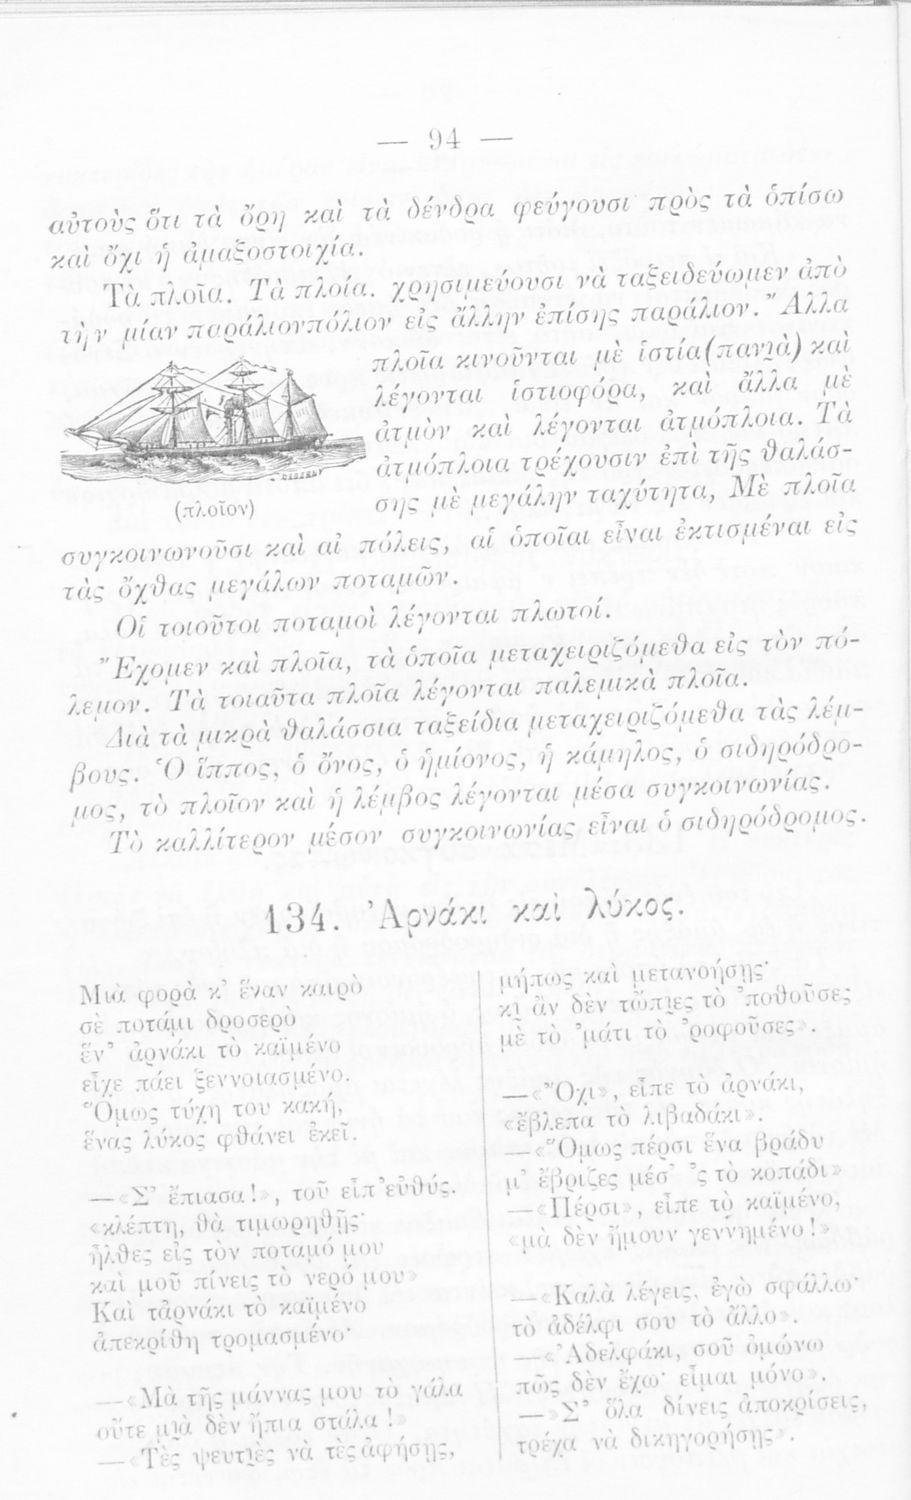 — 94 —
αὐτοὺς ὅτι τὰ ὄρη καὶ τὰ δένδρα φεύγουσι πρὸς τὰ ὀπίσω
καὶ ὄχι ἡ ἁμαξοστοιχία.
Τὰ πλοῖα. Τὰ πλοία. χρησιμεύουσι νὰ ταξειδεύωμεν ἀπὸ
τὴν μίαν παράλιονπόλιον εἰς ἄλλην ἐπίσης παράλιον. Ἄλλα
πλοῖα κινοῦνται μὲ ἱστία(πανιὰ) καὶ
λέγονται ἱστιοφόρα, καὶ ἄλλα μὲ
ἀτμὸν καὶ λέγονται ἀτμόπλοια. Τὰ
ἀτμόπλοια τρέχουσιν ἐπὶ τῆς θαλάσ-
σης μὲ μεγάλην ταχύτητα, Μὲ πλοῖα
(πλοῖον)
συγκοινωνοῦσι καὶ αἱ πόλεις, αἱ ὁποῖαι εἶναι ἐκτισμέναι εἰς
τὰς ὄχθας μεγάλων ποταμῶν.
Οἱ τοιοῦτοι ποταμοὶ λέγονται πλωτοί.
Ἔχομεν καὶ πλοῖα, τὰ ὁποῖα μεταχειριζόμεθα εἰς τὸν πό-
λεμον. Τὰ τοιαῦτα πλοῖα λέγονται παλεμικὰ πλοῖα.
Διὰ τὰ μικρὰ θαλάσσια ταξείδια μεταχειριζόμεθα τὰς λέμ-
βους. Ὁ ἵππος, ὁ ὄνος, ὁ ἡμίονος, ἡ κάμηλος, ὁ σιδηρόδρο-
μος, τὸ πλοῖον καὶ ἡ λέμβος λέγονται μέσα συγκοινωνίας.
Τὸ καλλίτερον μέσον συγκοινωνίας εἶναι ὁ σιδηρόδρομος.
134. Ἀρνάκι καὶ λύκος.
Μιὰ φορὰ κ' ἕναν καιρὸ
σὲ ποτάμι δροσερὸ
ἕν' ἀρνάκι τὸ καϊμένο
εἶχε πάει ξεννοιασμένο.
Ὅμως τύχη του κακή,
ἕνας λύκος φθάνει ἐκεῖ.
—«Σ' ἔπιασα!», τοῦ εἶπ'εὐθύς.
«κλέπτη, θὰ τιμωρηθῇς·
ἦλθες εἰς τὸν ποταμό μου
καὶ μοῦ πίνεις τὸ νερό μου»
Καὶ τἀρνάκι τὸ καϊμένο
ἀπεκρίθη τρομασμένο·
—«Μὰ τῆς μάννας μου τὸ γάλα
οὔτε μιὰ δὲν ἤπια στάλα!»
—«Τὲς ψευτιὲς νὰ τὲς ἀφήσῃς,
μήπως καὶ μετανοήσῃς·
κι ἂν δὲν τὤπιες τὸ 'ποθοῦσες
μὲ τὸ 'μάτι τὸ 'ροφοῦσες».
—«Ὄχι», εἶπε τὸ ἀρνάκι,
«ἔβλεπα τὸ λιβαδάκι».
—«Ὅμως πέρσι ἕνα βράδυ
μ' ἔβριζες μέσ' 'ς τὸ κοπάδι»
—«Πέρσι», εἶπε τὸ καϊμένο,
«μὰ δὲν ἤμουν γεννημένο!»
—«Καλὰ λέγεις, ἐγὼ σφάλλω·
τὸ ἀδέλφι σου τὸ ἄλλο».
—«Ἀδελφάκι, σοῦ ὀμώνω
πῶς δὲν ἔχω· εἶμαι μόνο».
—»Σ' ὅλα δίνεις ἀποκρίσεις,
τρέχα νὰ δικηγορήσῃς».